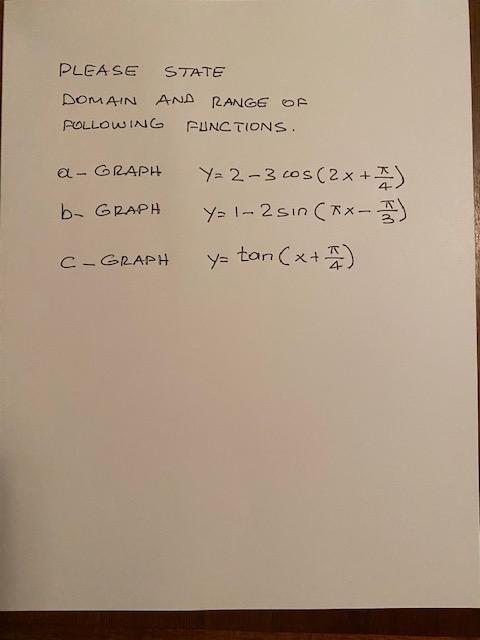 PLEASE STATE
DOMAIN AND RANGE OF
FOLLOWING FUNCTIONS.
a- GRAPH y= 2-3 cos(2x+π/4)
b- GRAPH y= 1-2 sin(πx-π/3)
C-GRAPH y= tan(x+π/4)